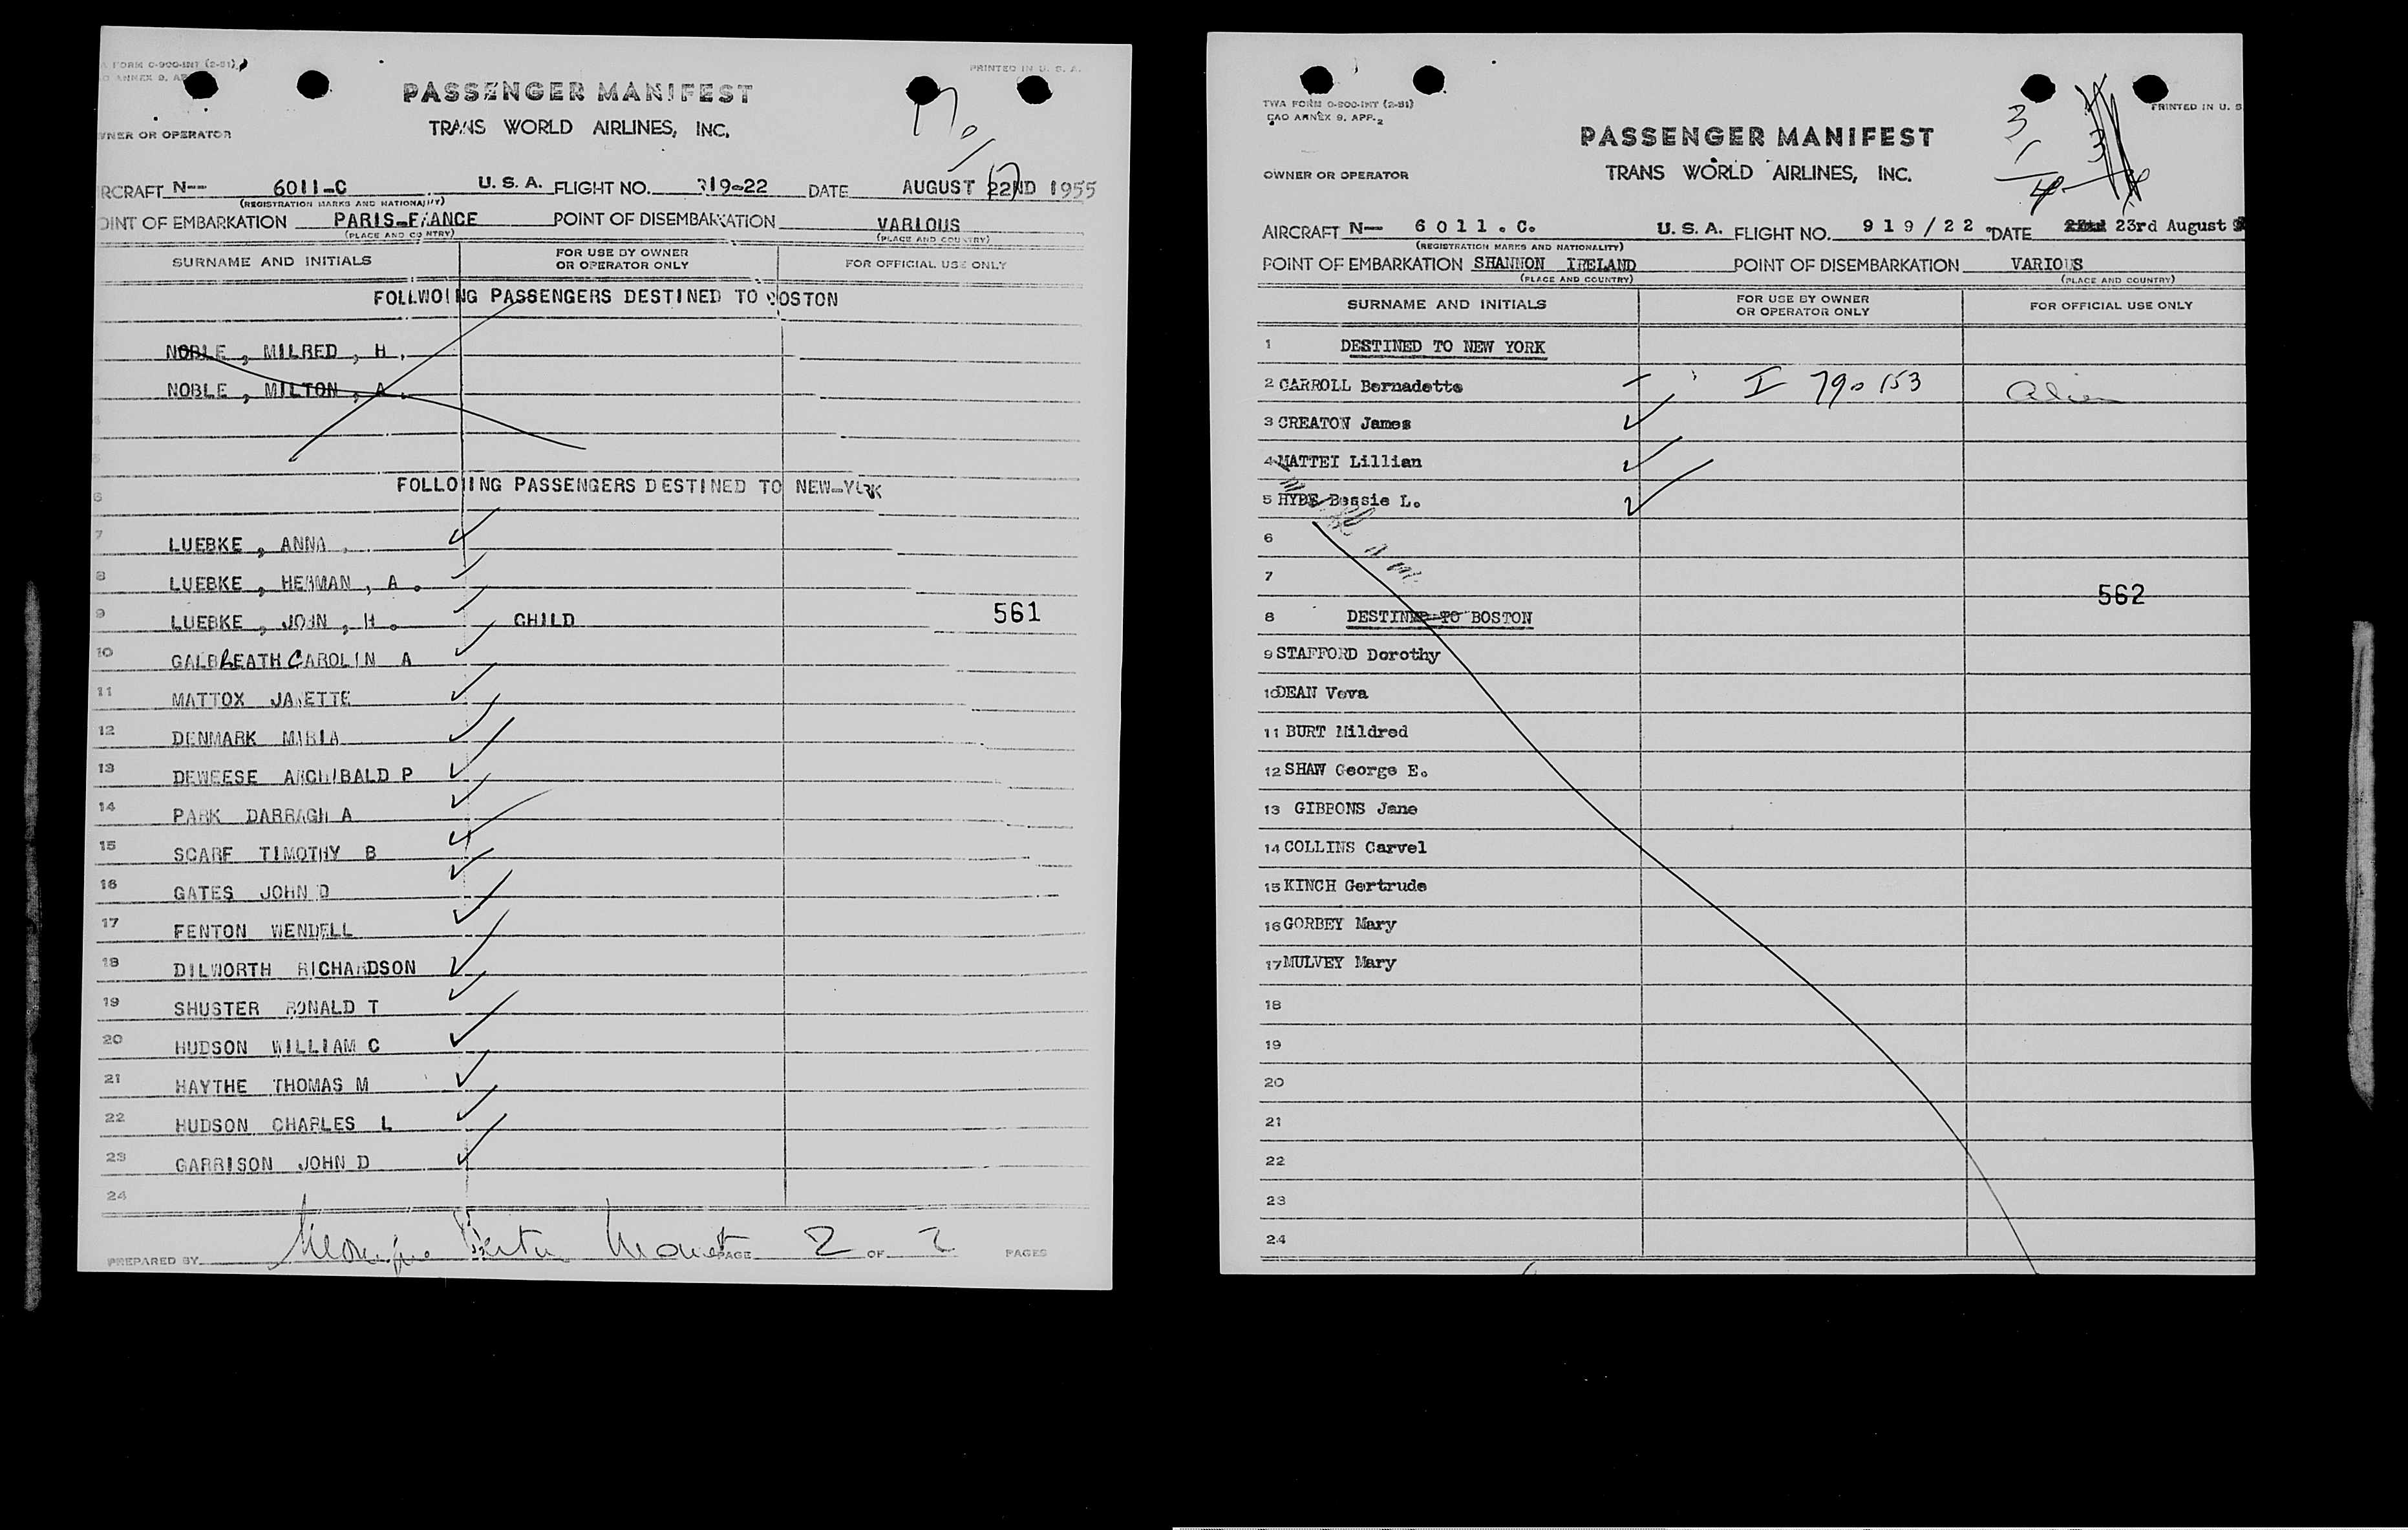 FORM O-900-INT (2-51)
PRINTED IN U. S. A.
PASSENGER MANIFEST
TRANS WORLD AIRLINES, INC.
OWNER OR OPERATOR
17
0
17
IRCRAFT N-- 6011-C U. S. A. FLIGHT NO. 919-22 DATE AUGUST 22ND 1955
(REGISTRATION MARKS AND NATIONALITY)
OINT OF EMBARKATION PARIS-FRANCE POINT OF DISEMBARKATION VARIOUS
(PLACE AND COUNTRY) (PLACE AND COUNTRY)
SURNAME AND INITIALS FOR USE BY OWNER OR OPERATOR ONLY FOR OFFICIAL USE ONLY
FOLLWOING PASSENGERS DESTINED TO BOSTON
NOBLE , MILRED , H .
NOBLE , MILTON , A .
4
5
6 FOLLOWING PASSENGERS DESTINED TO NEW-YORK
7 LUEBKE , ANNA .
8 LUEBKE , HERMAN , A .
9 LUEBKE , JOHN , H . CHILD 561
10 GALBREATH CAROLIN A
11 MATTOX JANETTE
12 DENMARK MARIA
13 DEWEESE ARCHIBALD P
14 PARK DARRAGH A
15 SCARF TIMOTHY B
16 GATES JOHN D
17 FENTON WENDELL
18 DILWORTH RICHARDSON
19 SHUSTER RONALD T
20 HUDSON WILLIAM C
21 HAYTHE THOMAS M
22 HUDSON CHARLES L
23 GARRISON JOHN D
24
PREPARED BY PAGE 2 OF 2 PAGES
TWA FORM O-900-INT (2-51)
CAO ANNEX 9. APP. 2
PRINTED IN U. S
PASSENGER MANIFEST
TRANS WORLD AIRLINES, INC.
OWNER OR OPERATOR
3
1
4
AIRCRAFT N-- 6 0 1 1 . C. U. S. A. FLIGHT NO. 9 1 9 / 2 2 . DATE 22nd 23rd August
(REGISTRATION MARKS AND NATIONALITY)
POINT OF EMBARKATION SHANNON IRELAND POINT OF DISEMBARKATION VARIOUS
(PLACE AND COUNTRY) (PLACE AND COUNTRY)
SURNAME AND INITIALS FOR USE BY OWNER OR OPERATOR ONLY FOR OFFICIAL USE ONLY
1 DESTINED TO NEW YORK
2 CARROLL Bernadette I 790 153 Alien
3 CREATON James
4 MATTEI Lillian
5 HYDE Bessie L.
6
7
562
8 DESTINED TO BOSTON
9 STAFFORD Dorothy
10 DEAN Veva
11 BURT Mildred
12 SHAW George E.
13 GIBBONS Jane
14 COLLINS Carvel
15 KINCH Gertrude
16 GORBEY Mary
17 MULVEY Mary
18
19
20
21
22
23
24